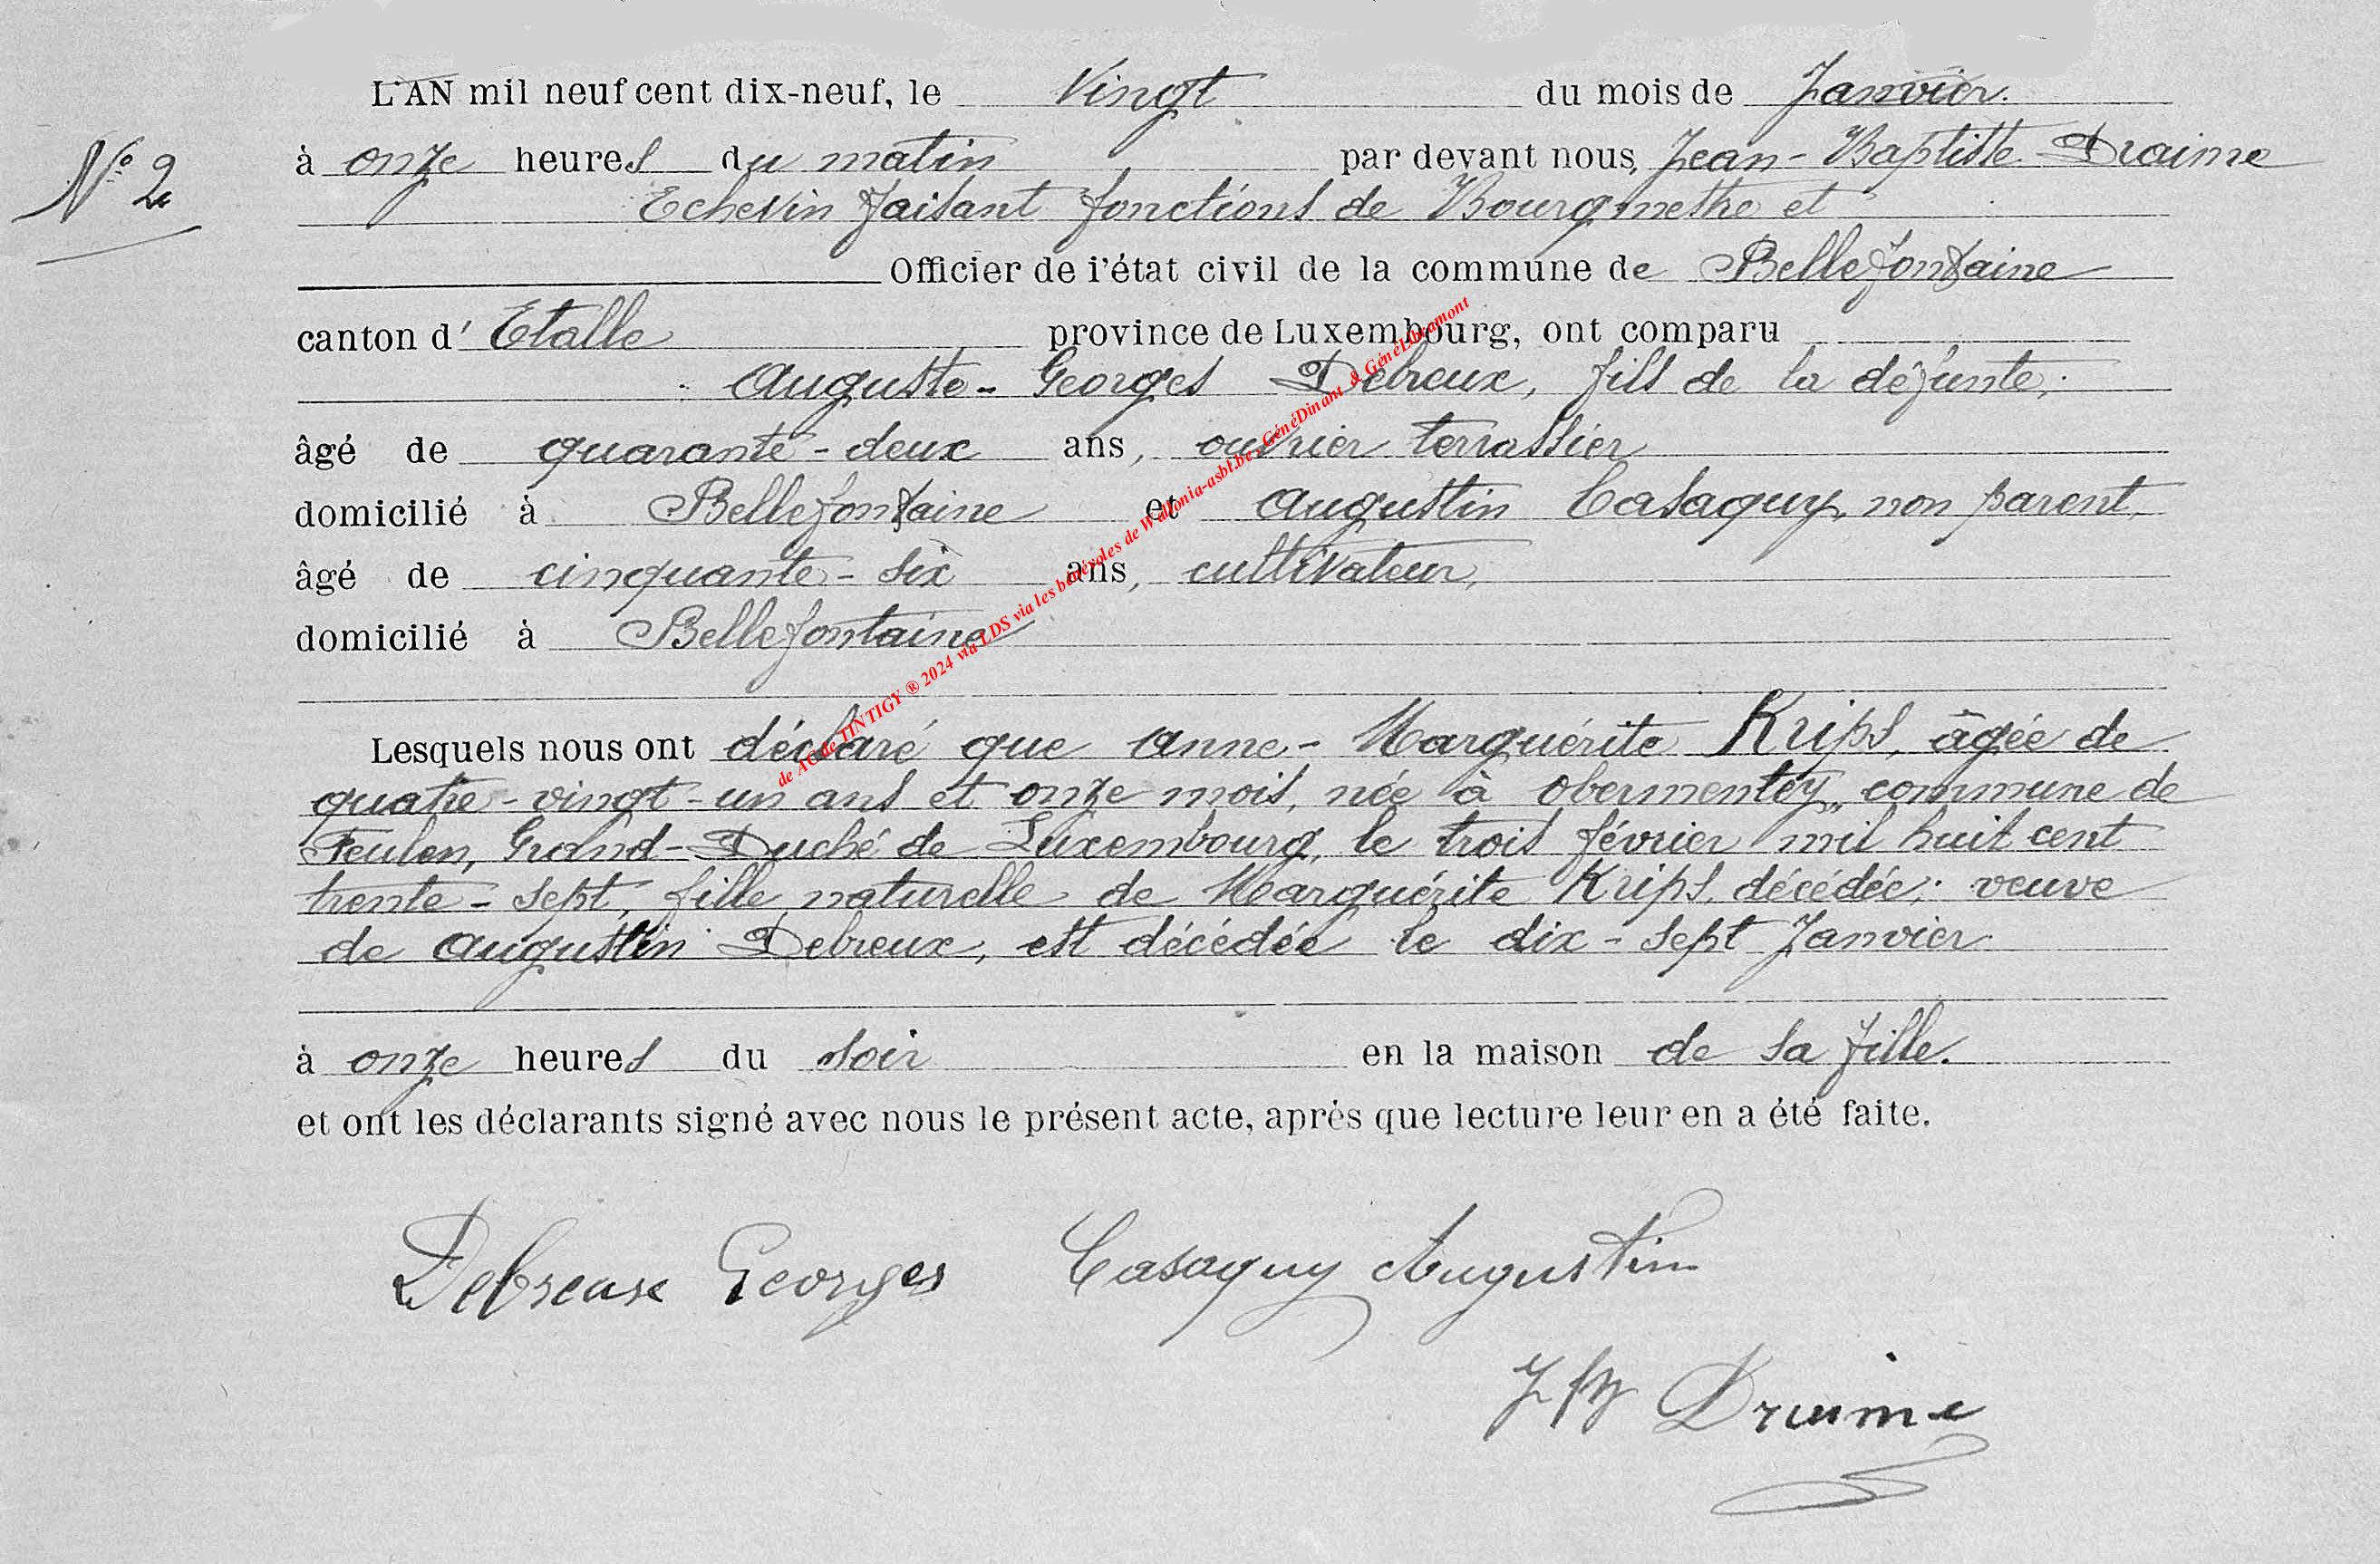 L'AN mil neuf cent dix-neuf, le Vingt du mois de Janvier.
N° 2
à onze heures du matin par devant nous, Jean-Baptiste Draime
Echevin faisant fonctions de Bourgmethe et
Officier de l'état civil de la commune de Bellefontaine
canton d' Etalle province de Luxembourg, ont comparu
Auguste-Georges Debreux, fils de la défunte,
âgé de quarante-deux ans, ouvrier terrassier
domicilié à Bellefontaine et Augustin Casaquy, non parent,
âgé de cinquante-six ans, cultivateur,
domicilié à Bellefontaine
Lesquels nous ont déclaré que Anne-Marguérite Krips, âgée de
quatre-vingt-un ans et onze mois, née à Obermentey, commune de
Feulen, Grand-Duché de Luxembourg, le trois février mil huit cent
trente-sept, fille naturelle de Marguérite Krips, décédée; veuve
de Augustin Debreux, est décédée le dix-sept Janvier
à onze heures du soir en la maison de sa fille.
et ont les déclarants signé avec nous le présent acte, après que lecture leur en a été faite.
Debreux Georges Casaquy Augustin
JB Draime
de AC de TINTIGY ® 2024 via LDS via les bénévoles de Wallonia-asbl.be, GénéDinant & GénéLibramont